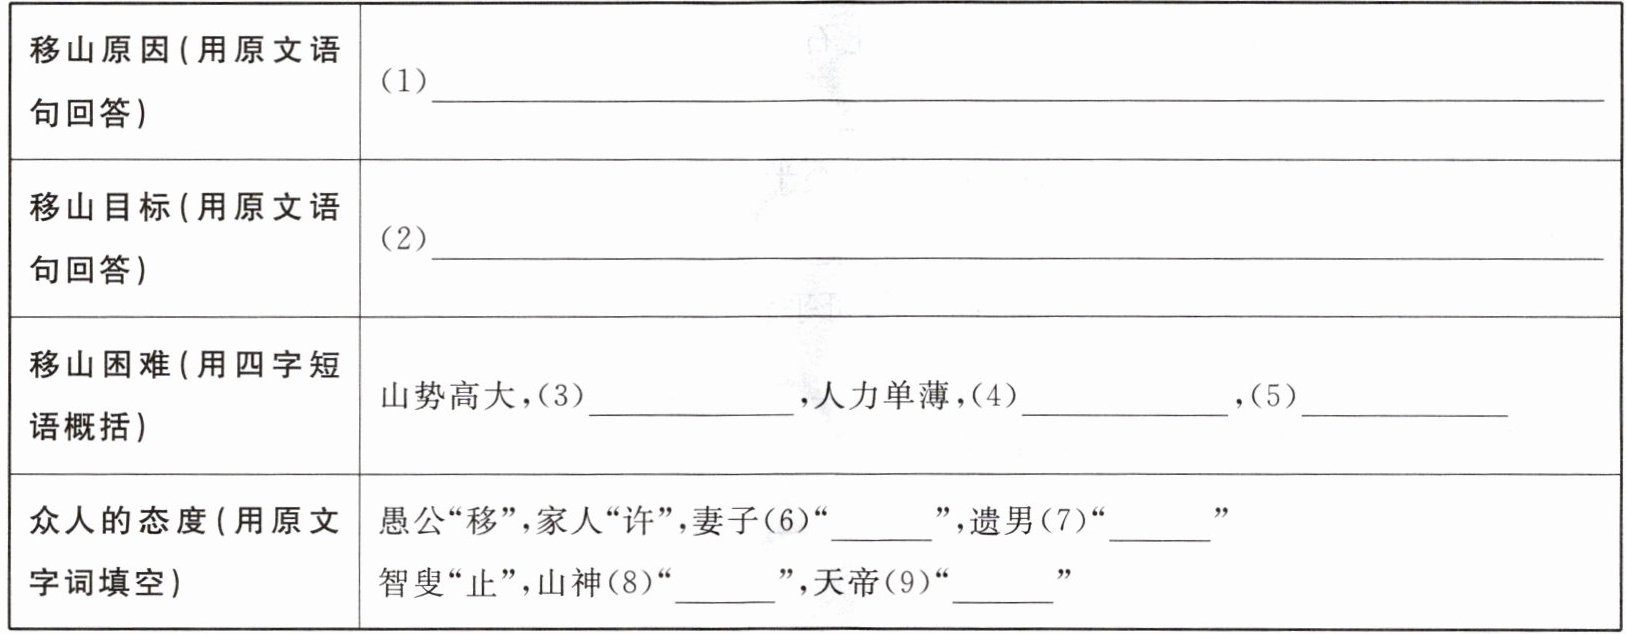 移山原因(用原文语
句回答)
(1)____________
移山目标(用原文语
句回答)
(2)____________
移山困难(用四字短
语概括)
山势高大,(3)____________,人力单薄,(4)____________,(5)____________
众人的态度(用原文
字词填空)
愚公“移”,家人“许”,妻子(6)“______”,遗男(7)“______”
智叟“止”,山神(8)“______”,天帝(9)“______”